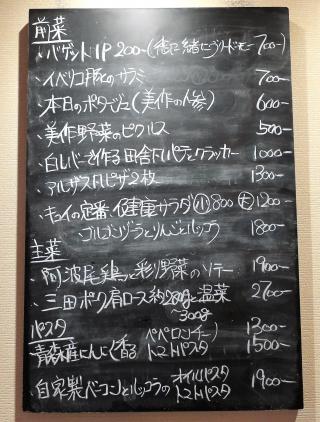 前菜
・バゲット1P 200-(
700-)
・イベリコ豚のサラミ 700-
・本日のポタージュ(美作の人参) 600-
・美作野菜のピクルス 500-
・白レバーで作る田舎風パテとクラッカー 1000-
・アルザス風ピザ2枚 1300-
・キョイの定番、健康サラダ(小)800 (大)1200-
ゴルゴンゾーラとりんごとルッコラ 1800-
主菜
・阿波尾鶏と彩り野菜のソテー 1900-
・三田ポーク肩ロース約280gと温菜 2700-
~300g
パスタ
青森産にんにく香る ペペロンチーノ 1300-
トマトパスタ 1500-
自家製ベーコンとルッコラの オイルパスタ
トマトパスタ 1900-